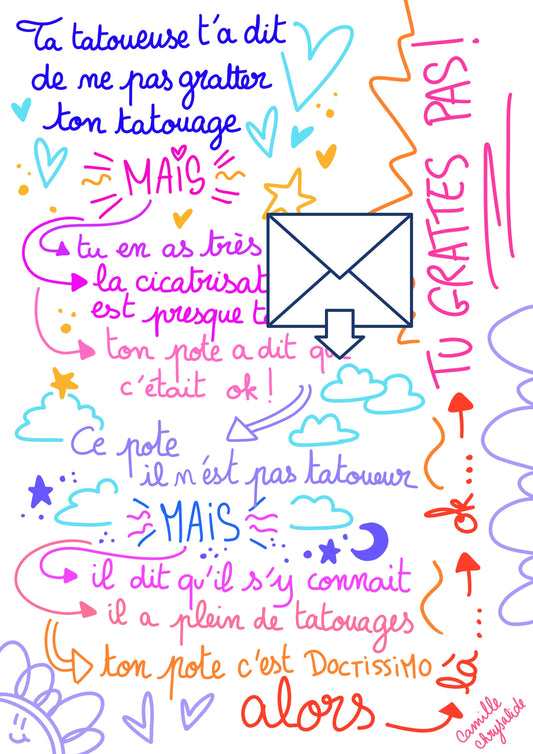 Ta tatoueuse t'a dit
de ne pas gratter
ton tatouage
MAIS
tu en as très
la cicatrisat
est presque t
ton pote a dit qu
c'était ok!
Ce pote
il n'est pas tatoueur
MAIS
il dit qu'il s'y connait
il a plein de tatouages
ton pote c'est DOCTISSIMO
alors
là...
ok...
TU GRATTES PAS!
Camille
Chrysalide